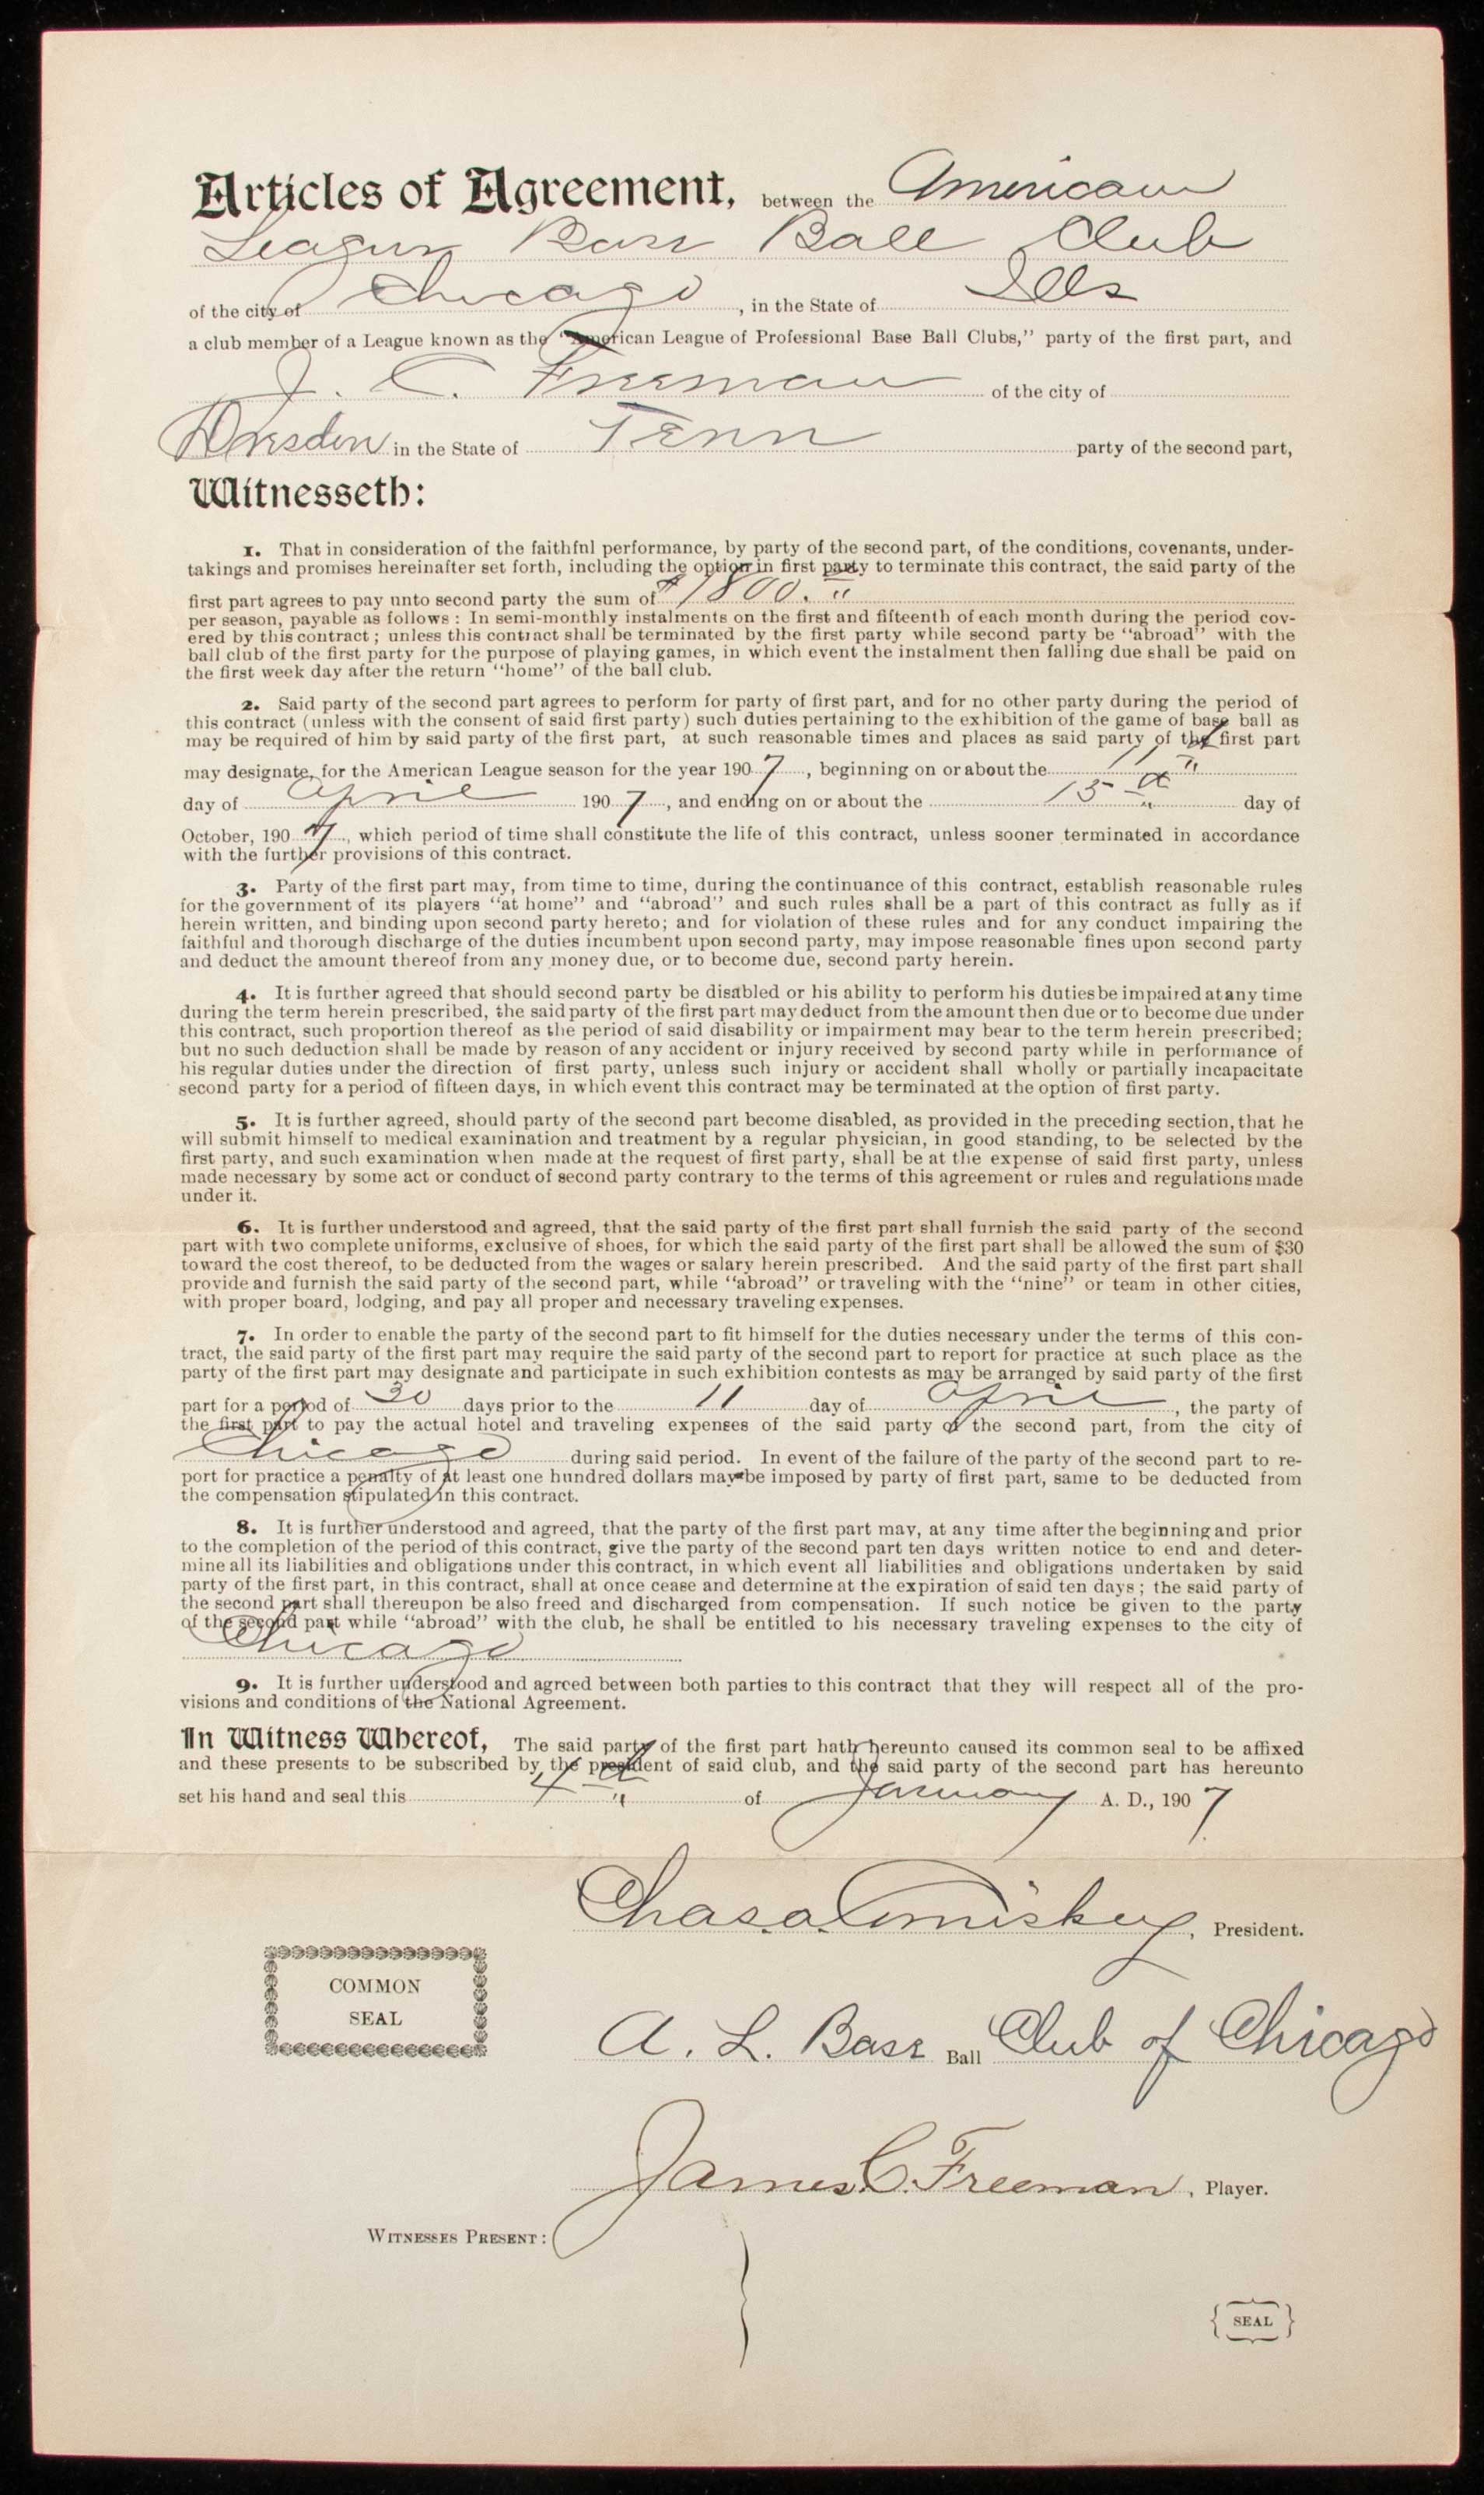 Articles of Agreement, between the American
League Base Ball Club
of the city of Chicago, in the State of Ills
a club member of a League known as the "American League of Professional Base Ball Clubs," party of the first part, and
J. C. Freeman of the city of
Dresden in the State of Tenn party of the second part,
Witnesseth:
1. That in consideration of the faithful performance, by party of the second part, of the conditions, covenants, under-
takings and promises hereinafter set forth, including the option in first party to terminate this contract, the said party of the
first part agrees to pay unto second party the sum of $1800.
per season, payable as follows: In semi-monthly instalments on the first and fifteenth of each month during the period cov-
ered by this contract; unless this contract shall be terminated by the first party while second party be "abroad" with the
ball club of the first party for the purpose of playing games, in which event the instalment then falling due shall be paid on
the first week day after the return "home" of the ball club.
2. Said party of the second part agrees to perform for party of first part, and for no other party during the period of
this contract (unless with the consent of said first party) such duties pertaining to the exhibition of the game of base ball as
may be required of him by said party of the first part, at such reasonable times and places as said party of the first part
may designate, for the American League season for the year 1907, beginning on or about the 11th
day of April 1907, and ending on or about the 15th day of
October, 1907, which period of time shall constitute the life of this contract, unless sooner terminated in accordance
with the further provisions of this contract.
3. Party of the first part may, from time to time, during the continuance of this contract, establish reasonable rules
for the government of its players "at home" and "abroad" and such rules shall be a part of this contract as fully as if
herein written, and binding upon second party hereto; and for violation of these rules and for any conduct impairing the
faithful and thorough discharge of the duties incumbent upon second party, may impose reasonable fines upon second party
and deduct the amount thereof from any money due, or to become due, second party herein.
4. It is further agreed that should second party be disabled or his ability to perform his duties be impaired at any time
during the term herein prescribed, the said party of the first part may deduct from the amount then due or to become due under
this contract, such proportion thereof as the period of said disability or impairment may bear to the term herein prescribed;
but no such deduction shall be made by reason of any accident or injury received by second party while in performance of
his regular duties under the direction of first party, unless such injury or accident shall wholly or partially incapacitate
second party for a period of fifteen days, in which event this contract may be terminated at the option of first party.
5. It is further agreed, should party of the second part become disabled, as provided in the preceding section, that he
will submit himself to medical examination and treatment by a regular physician, in good standing, to be selected by the
first party, and such examination when made at the request of first party, shall be at the expense of said first party, unless
made necessary by some act or conduct of second party contrary to the terms of this agreement or rules and regulations made
under it.
6. It is further understood and agreed, that the said party of the first part shall furnish the said party of the second
part with two complete uniforms, exclusive of shoes, for which the said party of the first part shall be allowed the sum of $30
toward the cost thereof, to be deducted from the wages or salary herein prescribed. And the said party of the first part shall
provide and furnish the said party of the second part, while "abroad" or traveling with the "nine" or team in other cities,
with proper board, lodging, and pay all proper and necessary traveling expenses.
7. In order to enable the party of the second part to fit himself for the duties necessary under the terms of this con-
tract, the said party of the first part may require the said party of the second part to report for practice at such place as the
party of the first part may designate and participate in such exhibition contests as may be arranged by said party of the first
part for a period of 30 days prior to the 11 day of April, the party of
the first part to pay the actual hotel and traveling expenses of the said party of the second part, from the city of
Chicago during said period. In event of the failure of the party of the second part to re-
port for practice a penalty of at least one hundred dollars may be imposed by party of first part, same to be deducted from
the compensation stipulated in this contract.
8. It is further understood and agreed, that the party of the first part may, at any time after the beginning and prior
to the completion of the period of this contract, give the party of the second part ten days written notice to end and deter-
mine all its liabilities and obligations under this contract, in which event all liabilities and obligations undertaken by said
party of the first part, in this contract, shall at once cease and determine at the expiration of said ten days; the said party of
the second part shall thereupon be also freed and discharged from compensation. If such notice be given to the party
of the second part while "abroad" with the club, he shall be entitled to his necessary traveling expenses to the city of
Chicago
9. It is further understood and agreed between both parties to this contract that they will respect all of the pro-
visions and conditions of the National Agreement.
In Witness Whereof, The said party of the first part hath hereunto caused its common seal to be affixed
and these presents to be subscribed by the president of said club, and the said party of the second part has hereunto
set his hand and seal this 4th of January A. D., 1907
Chas a Comiskey, President.
COMMON
SEAL
A. L. Base Ball Club of Chicago
James C. Freeman, Player.
WITNESSES PRESENT:
SEAL